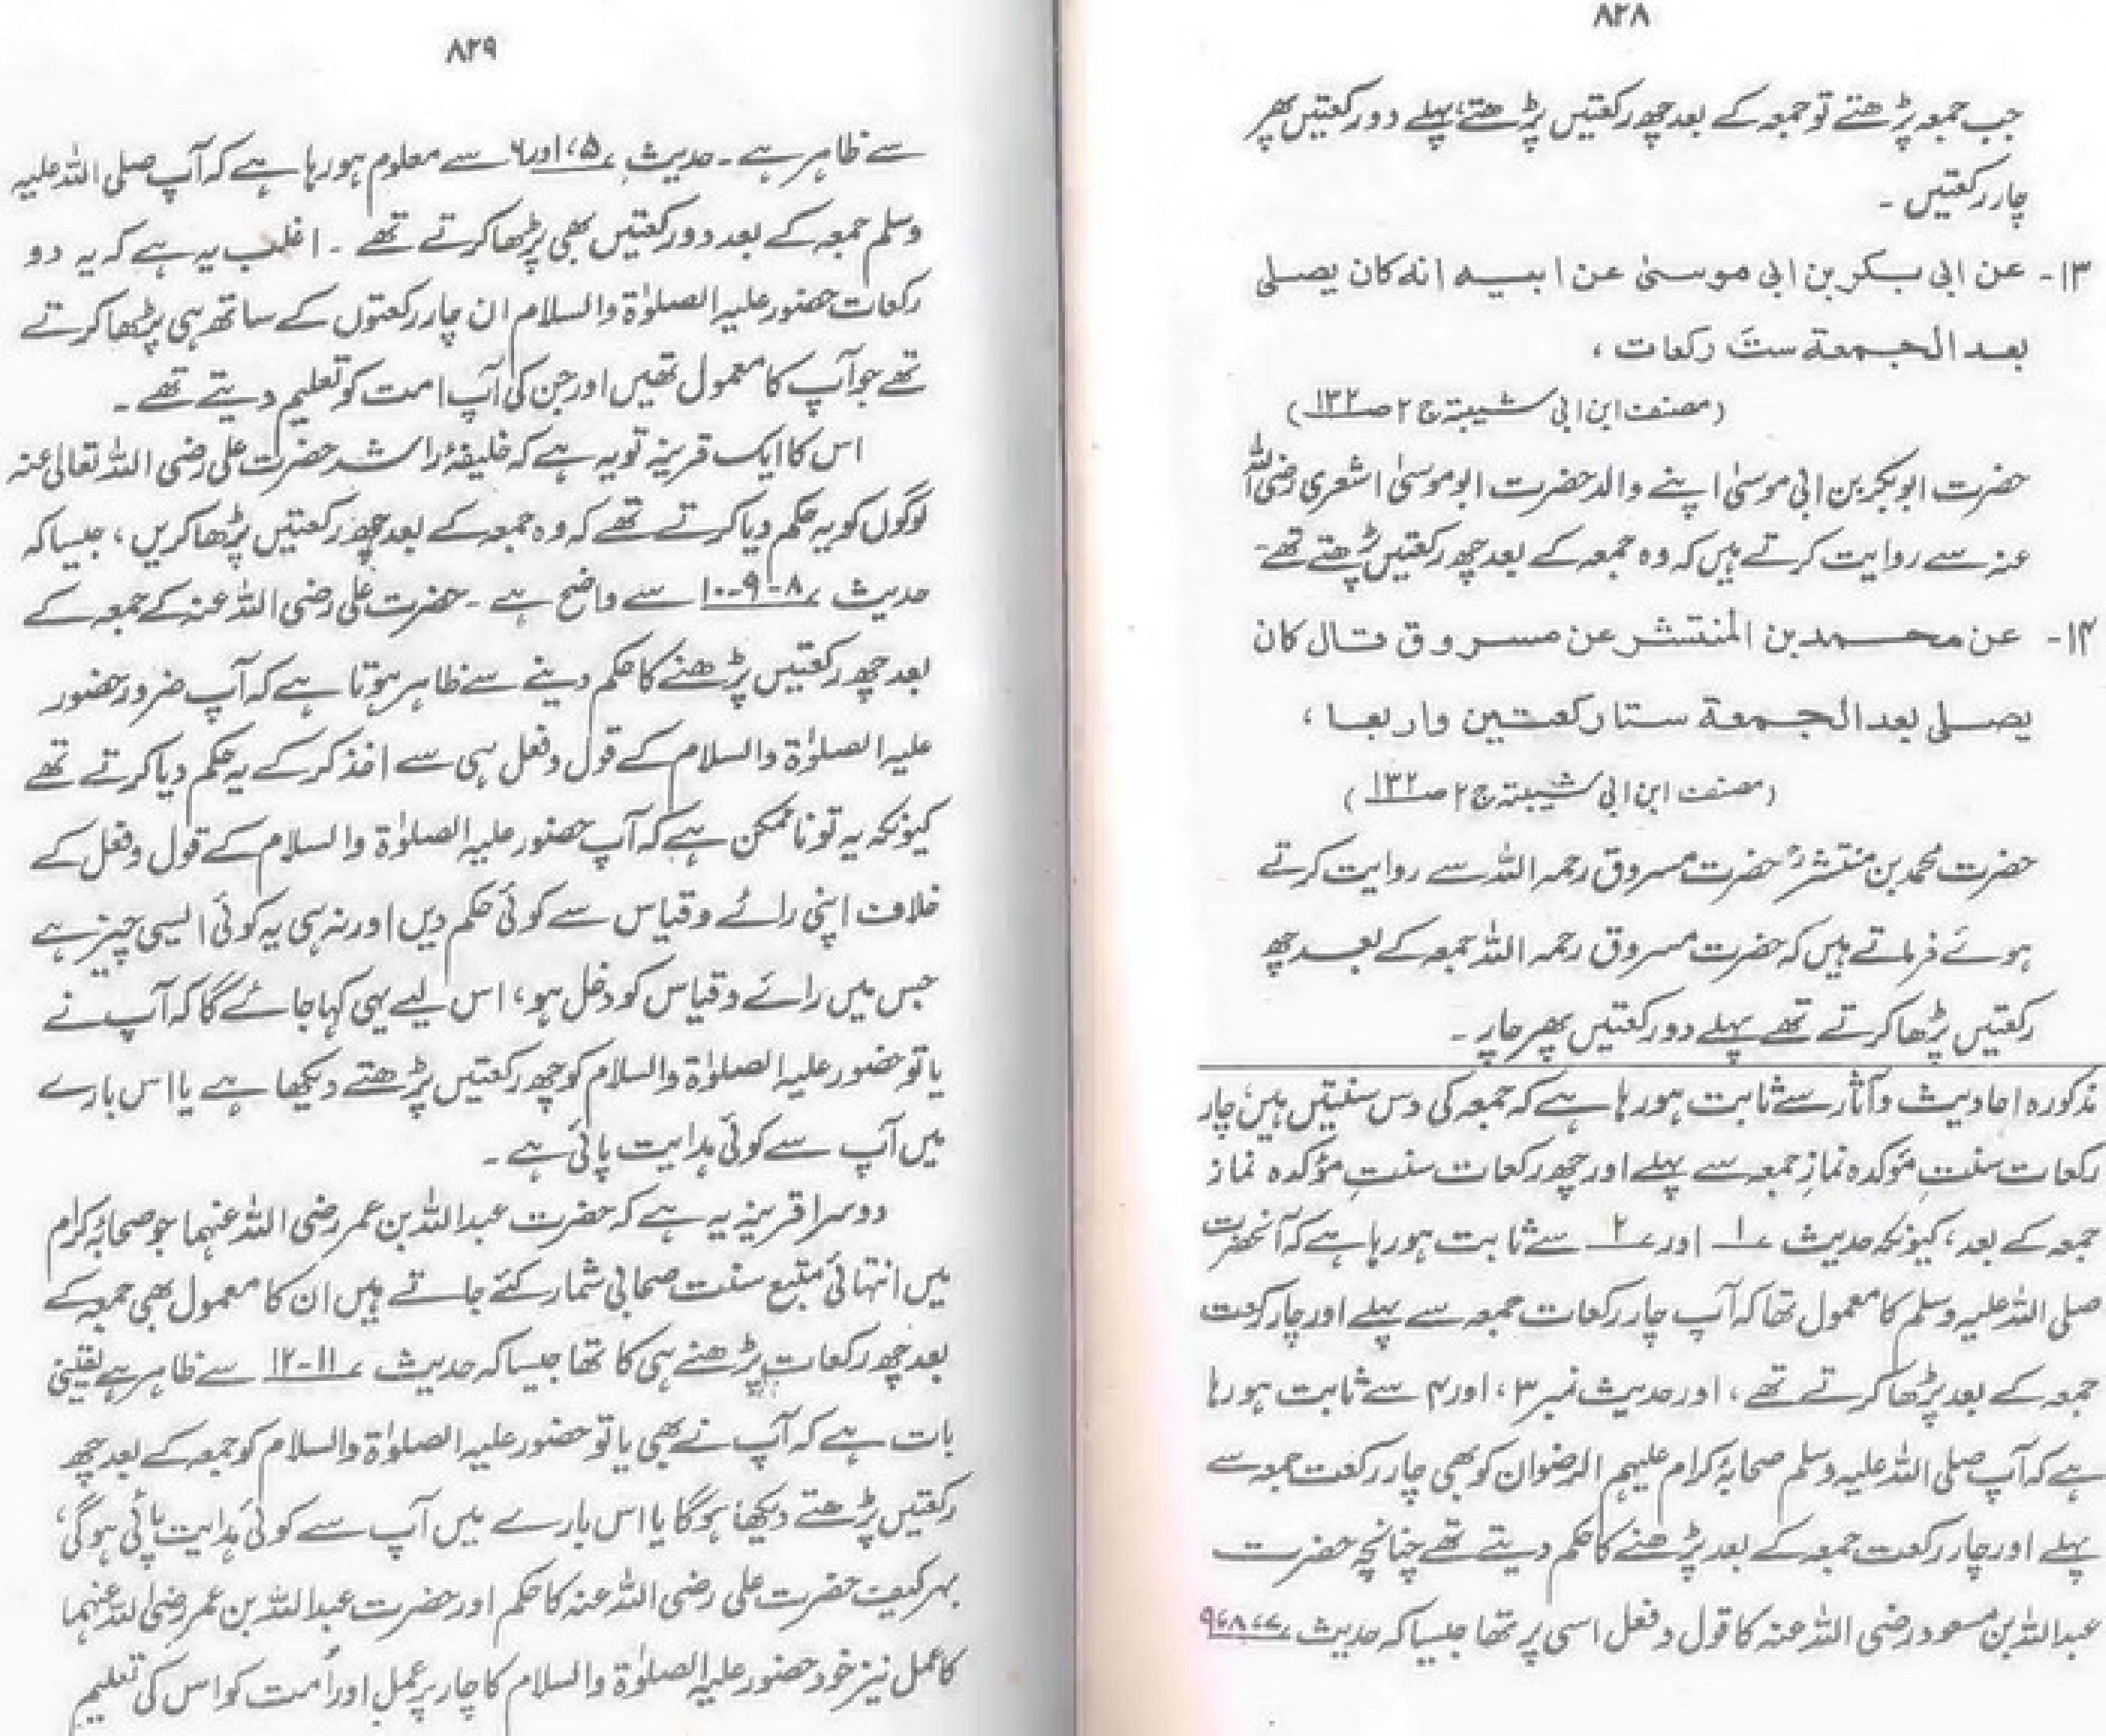 ۸۲۸
جب جمعہ پڑھتے تو جمعہ کے بعد چھ رکعتیں پڑھتے، پہلے دو رکعتیں پھر
چار رکعتیں ۔
۱۳- عن ابی بکر بن ابی موسیٰ عن ابیہ انہ کان یصلی
بعد الجمعة ست رکعات ،
(مصنف ابن ابی شیبۃ ج ۲ ص ۱۳۲)
حضرت ابوبکر بن ابی موسیٰ اپنے والد حضرت ابو موسیٰ اشعری رضی اللہ
عنہ سے روایت کرتے ہیں کہ وہ جمعہ کے بعد چھ رکعتیں پڑھتے تھے۔
۱۴- عن محمد بن المنتشر عن مسروق قال کان
یصلی بعد الجمعة ستا رکعتین واربعا ،
(مصنف ابن ابی شیبۃ ج ۲ ص ۱۳۲)
حضرت محمد بن منتشرؒ حضرت مسروق رحمہ اللہ سے روایت کرتے
ہوئے فرماتے ہیں کہ حضرت مسروق رحمہ اللہ جمعہ کے بعد چھ
رکعتیں پڑھا کرتے تھے پہلے دو رکعتیں پھر چار ۔
مذکورہ احادیث و آثار سے ثابت ہو رہا ہے کہ جمعہ کی دس سنتیں ہیں، چار
رکعات سنتِ مؤکدہ نمازِ جمعہ سے پہلے اور چھ رکعات سنتِ مؤکدہ نماز
جمعہ کے بعد ، کیونکہ حدیث ۱ اور ۲ سے ثابت ہو رہا ہے کہ آنحضرت
صلی اللہ علیہ وسلم کا معمول تھا کہ آپ چار رکعات جمعہ سے پہلے اور چار رکعت
جمعہ کے بعد پڑھا کرتے تھے ، اور حدیث نمبر ۳، اور ۴ سے ثابت ہو رہا
ہے کہ آپ صلی اللہ علیہ وسلم صحابۂ کرام علیہم الرضوان کو بھی چار رکعت جمعہ سے
پہلے اور چار رکعت جمعہ کے بعد پڑھنے کا حکم دیتے تھے چنانچہ حضرت
عبداللہ بن مسعود رضی اللہ عنہ کا قول و فعل اسی پر تھا جیسا کہ حدیث ۷،۸،۹
۸۲۹
سے ظاہر ہے ۔ حدیث ۵، اور ۶ سے معلوم ہو رہا ہے کہ آپ صلی اللہ علیہ
وسلم جمعہ کے بعد دو رکعتیں بھی پڑھا کرتے تھے ۔ اغلب یہ ہے کہ یہ دو
رکعات حضور علیہ الصلوٰۃ والسلام ان چار رکعتوں کے ساتھ ہی پڑھا کرتے
تھے جو آپ کا معمول تھیں اور جن کی آپ امت کو تعلیم دیتے تھے ۔
اس کا ایک قرینہ تو یہ ہے کہ خلیفۂ راشد حضرت علی رضی اللہ تعالیٰ عنہ
لوگوں کو یہ حکم دیا کرتے تھے کہ وہ جمعہ کے بعد چھ رکعتیں پڑھا کریں ، جیسا کہ
حدیث ۸-۹-۱۰ سے واضح ہے ۔ حضرت علی رضی اللہ عنہ کے جمعہ کے
بعد چھ رکعتیں پڑھنے کا حکم دینے سے ظاہر ہوتا ہے کہ آپ ضرور حضور
علیہ الصلوٰۃ والسلام کے قول و فعل ہی سے اخذ کر کے یہ حکم دیا کرتے تھے
کیونکہ یہ تو ناممکن ہے کہ آپ حضور علیہ الصلوٰۃ والسلام کے قول و فعل کے
خلاف اپنی رائے و قیاس سے کوئی حکم دیں اور نہ ہی یہ کوئی ایسی چیز ہے
جس میں رائے و قیاس کو دخل ہو ، اس لیے یہی کہا جائے گا کہ آپ نے
یا تو حضور علیہ الصلوٰۃ والسلام کو چھ رکعتیں پڑھتے دیکھا ہے یا اس بارے
میں آپ سے کوئی ہدایت پائی ہے ۔
دوسرا قرینہ یہ ہے کہ حضرت عبداللہ بن عمر رضی اللہ عنہما جو صحابۂ کرام
میں انتہائی متبع سنت صحابی شمار کئے جاتے ہیں ان کا معمول بھی جمعہ کے
بعد چھ رکعات پڑھنے ہی کا تھا جیسا کہ حدیث ۱۱-۱۲ سے ظاہر ہے یقینی
بات ہے کہ آپ نے بھی یا تو حضور علیہ الصلوٰۃ والسلام کو جمعہ کے بعد چھ
رکعتیں پڑھتے دیکھا ہوگا یا اس بارے میں آپ سے کوئی ہدایت پائی ہوگی،
بہر کیف حضرت علی رضی اللہ عنہ کا حکم اور حضرت عبداللہ بن عمر رضی اللہ عنہما
کا عمل نیز خود حضور علیہ الصلوٰۃ والسلام کا چار پر عمل اور اُمت کو اس کی تعلیم